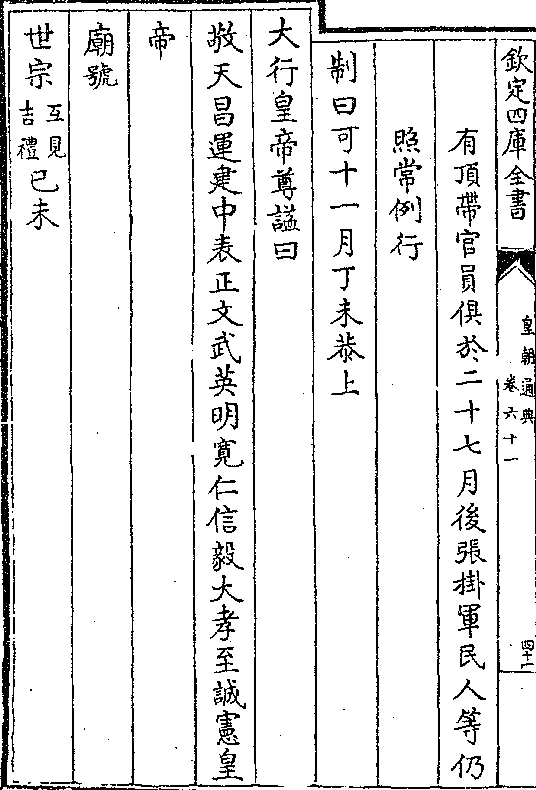 欽定四庫全書
皇朝通典
卷六十一
四十一
有頂帶官員俱於二十七月後張掛軍民人等仍
照常例行
制曰可十一月丁未恭上
大行皇帝尊諡曰
敬天昌運建中表正文武英明寬仁信毅大孝至誠憲皇
帝
廟號
世宗互見吉禮己未